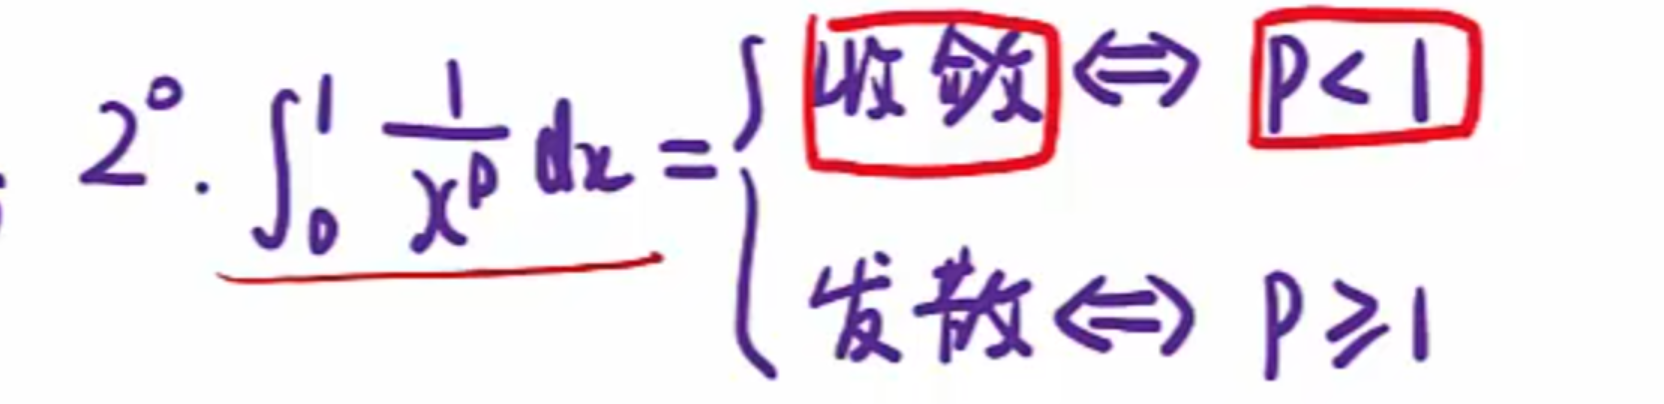 2°. ∫₀¹ 1/xᵖ dx = { 收敛 ⇔ P < 1
发散 ⇔ P ≥ 1